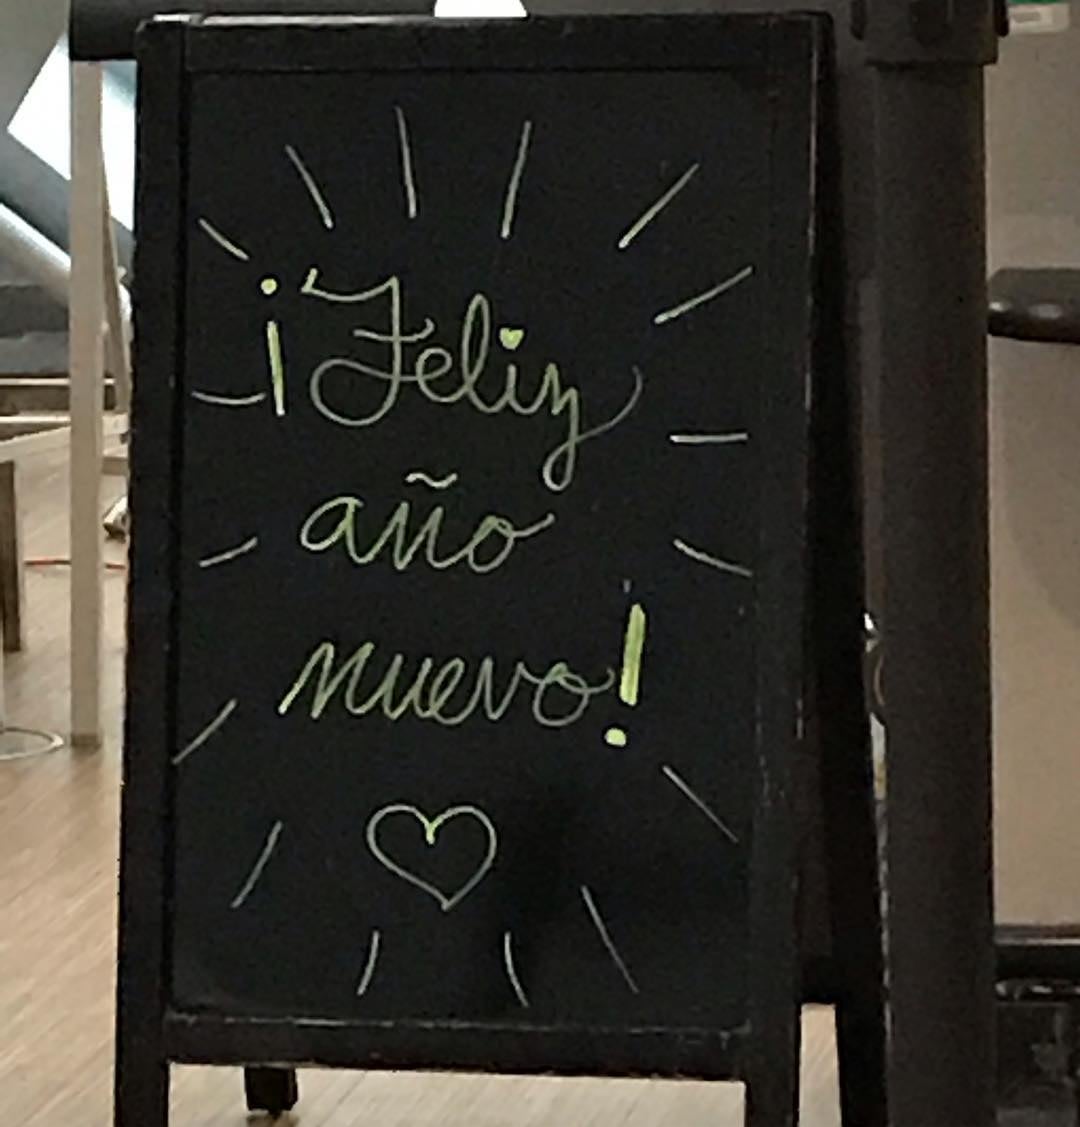 ¡Feliz
año
nuevo!